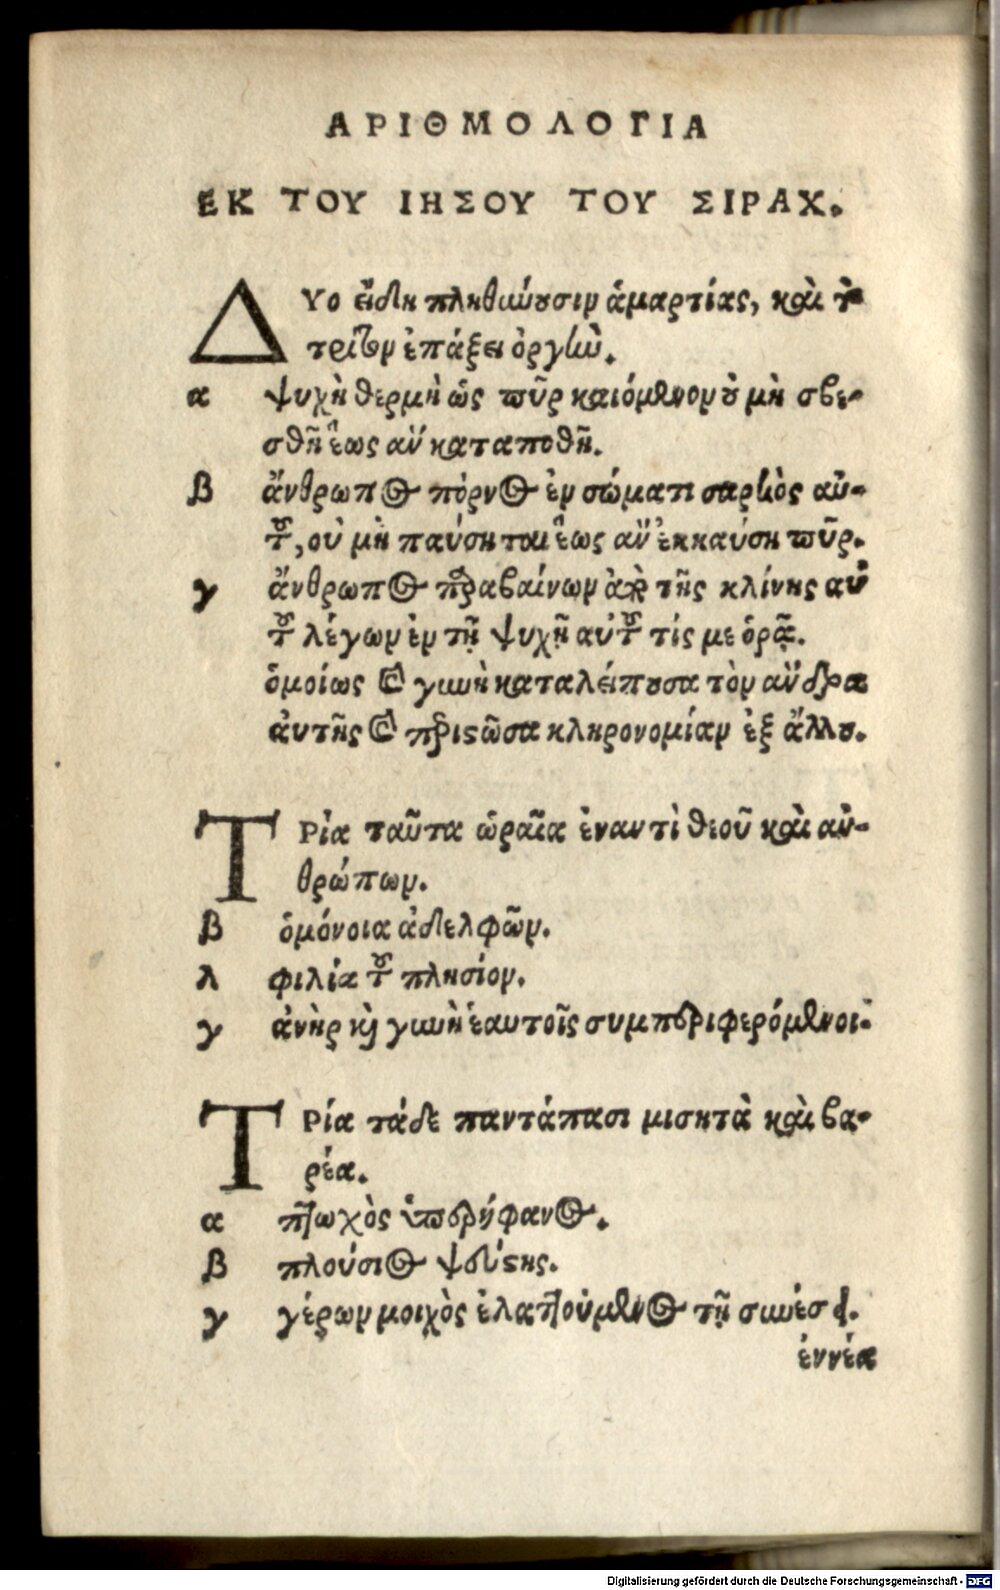 ΑΡΙΘΜΟΛΟΓΙΑ
ΕΚ ΤΟΥ ΙΗΣΟΥ ΤΟΥ ΣΙΡΑΧ.
ΔΥο εἴδη πληθύνουσιν ἁμαρτίας, καὶ τὸ
τρίτον ἐπάξει ὀργὴν.
α ψυχὴ θερμὴ ὡς πῦρ καιόμενον οὐ μὴ σβε-
σθῇ ἕως ἂν καταποθῇ.
β ἄνθρωπος πόρνος ἐν σώματι σαρκὸς αὐ-
τοῦ, οὐ μὴ παύσηται ἕως ἂν ἐκκαύση πῦρ.
γ ἄνθρωπος παραβαίνων ἀπὸ τῆς κλίνης αὐ
τοῦ λέγων ἐν τῇ ψυχῇ αὐτοῦ τίς με ὁρᾷ.
ὁμοίως καὶ γυνὴ καταλείπουσα τὸν ἄνδρα
ἀυτῆς καὶ παριστῶσα κληρονομίαν ἐξ ἄλλου.
ΤΡία ταῦτα ὡραῖα ἐναντὶ θεοῦ καὶ αν-
θρώπων.
β ὁμόνοια ἀδελφῶν.
λ φιλία τοῦ πλησίον.
γ ἀνὴρ καὶ γυνὴ ἑαυτοῖς συμπεριφερόμενοι.
ΤΡία τάδε παντάπασι μισητὰ καὶ βα-
ρέα.
α πτωχὸς ὑπερήφανος.
β πλούσιος ψεύστης.
γ γέρων μοιχὸς ἐλαττούμενος τῇ συνέσει.
ἐννέα
Digitalisierung gefördert durch die Deutsche Forschungsgemeinschaft - DFG